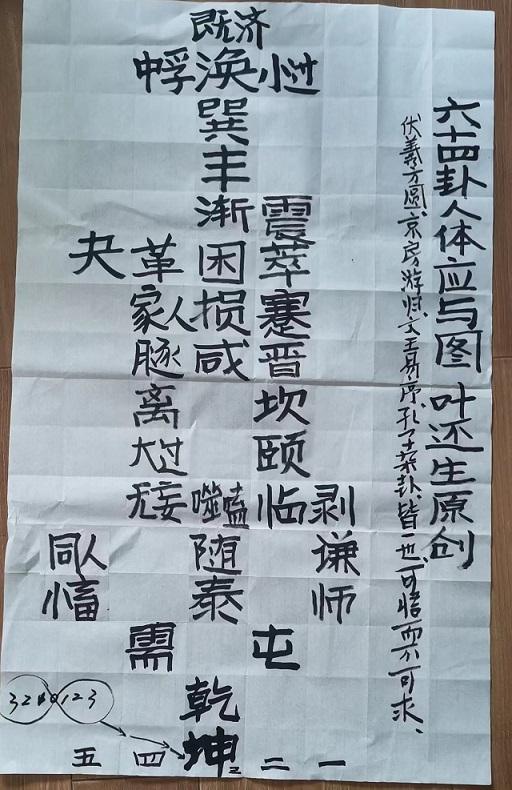 六十四卦人体应与图 叶还生原创
伏羲方圆、京房游归、文王易序、孔子杂卦、皆一也、可悟而不可求、
既济
中孚 涣 小过
巽
丰
渐 震
夬 革 困 萃
家人 损 蹇
咸 晋
离 坎
大过 颐
无妄 噬嗑 临 剥
同人 随 谦
小畜 泰 师
需 屯
乾
五 四 坤 三 二 一